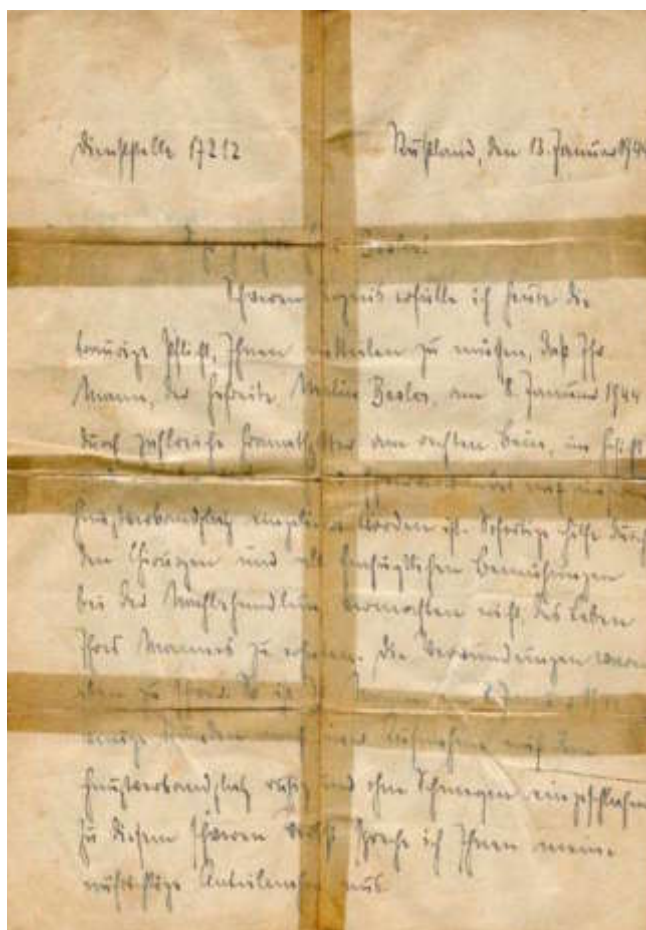 Dienststelle 17212 Rußland, den 13. Januar 1944
Sehr geehrte Frau Besler!
Schweren erfülle ich heute die
traurige Pflicht, Ihnen mitteilen zu müssen, daß Ihr
Mann, der Gefreite Besler, am 8. Januar 1944
durch zahlreiche Granatsplitter am rechten Bein, im Gesicht
auf unseren
Hauptverbandplatz eingeliefert worden ist. Sofortige Hilfe durch
den Chirurgen und alle Bemühungen
bei der Nachbehandlung vermochten nicht, das Leben
Ihres Mannes zu erhalten. Die Verwundungen waren
eben zu schwer. So ist Ihr Mann am 8. Januar
einige Stunden nach seiner Aufnahme auf dem
Hauptverbandplatz ruhig und ohne Schmerzen eingeschlafen.
Zu diesem schweren Verlust spreche ich Ihnen meine
aufrichtige Anteilnahme aus.